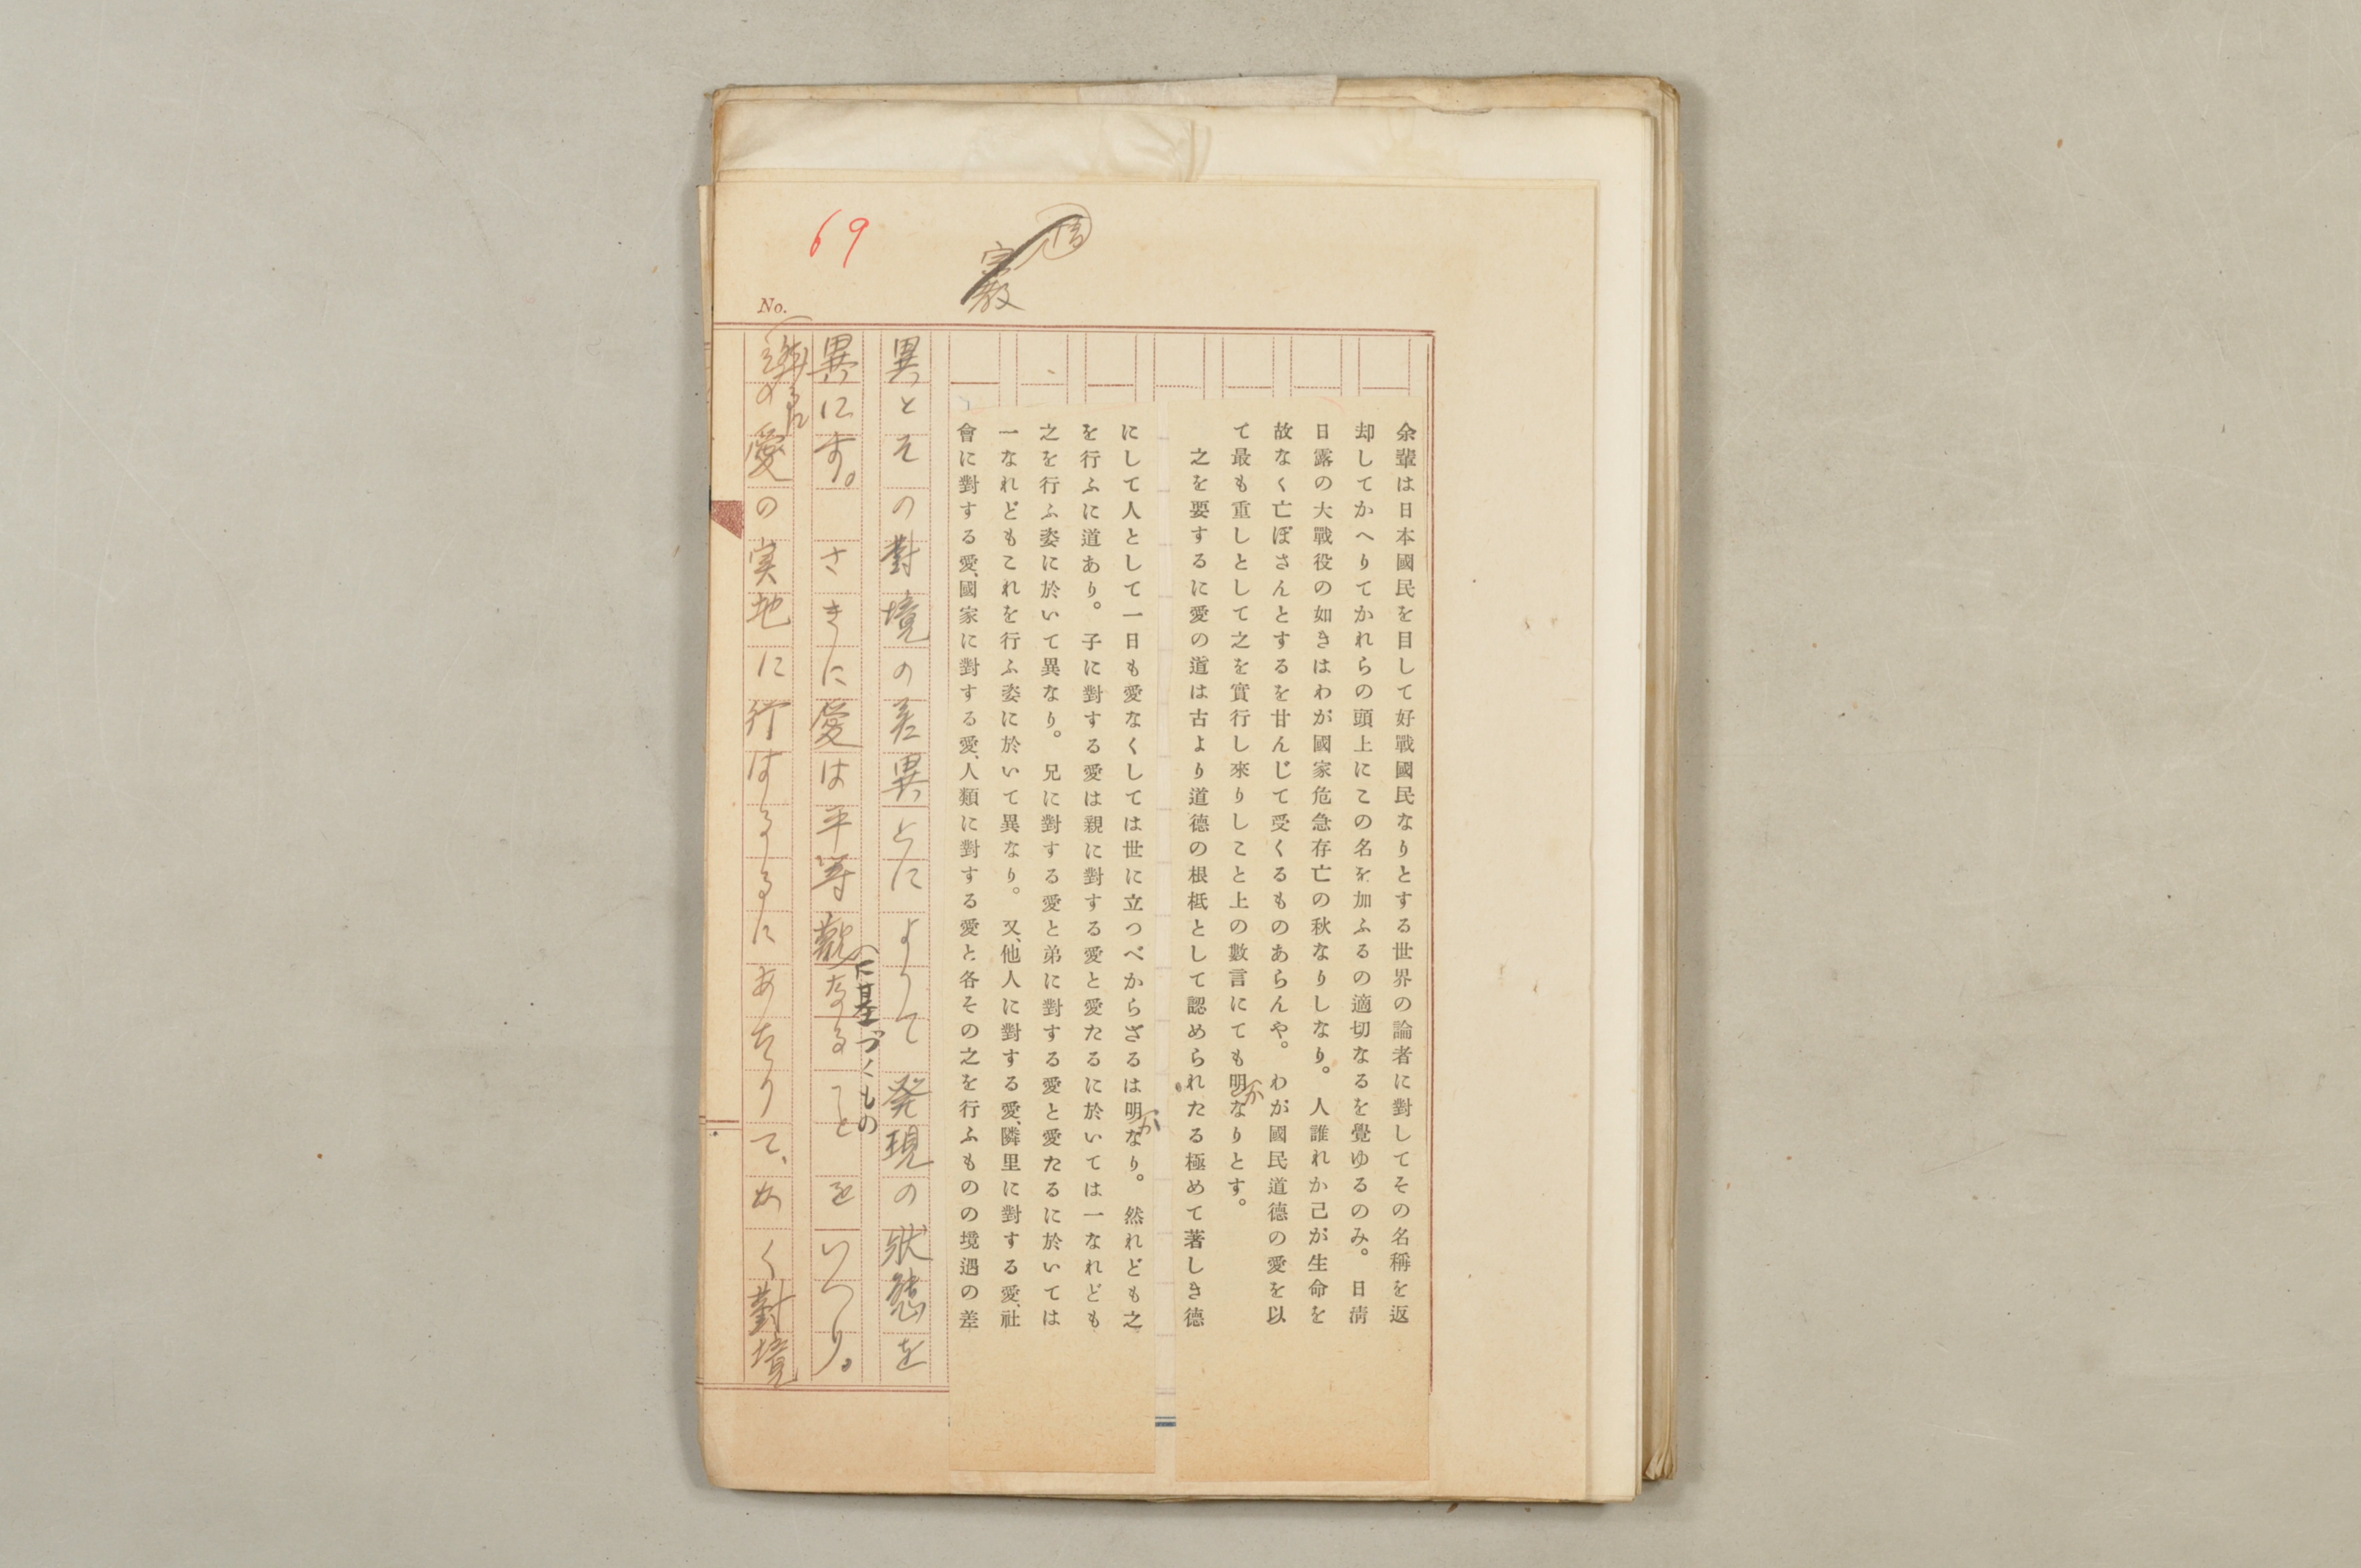 69
宗教
No.
余輩は日本國民を目して好戰國民なりとする世界の論者に對してその名稱を返
却してかへりてかれらの頭上にこの名を加ふるの適切なるを覺ゆるのみ。日淸
日露の大戰役の如きはわが國家危急存亡の秋なりしなり。人誰れか己が生命を
故なく亡ぼさんとするを甘んじて受くるものあらんや。わが國民道德の愛を以
て最も重しとして之を實行し來りしこと上の數言にても明かなりとす。
之を要するに愛の道は古より道德の根柢として認められたる極めて著しき德
にして人として一日も愛なくしては世に立つべからざるは明かなり。然れども之
を行ふに道あり。子に對する愛は親に對する愛と愛たるに於いては一なれども
之を行ふ姿に於いて異なり。兄に對する愛と弟に對する愛と愛たるに於いては
一なれどもこれを行ふ姿に於いて異なり。又、他人に對する愛、隣里に對する愛、社
會に對する愛、國家に對する愛、人類に對する愛と各その之を行ふものの境遇の差
異とその對境の差異とによりて発現の狀態を
異にす。さきに愛は平等觀なることをいへり。
に基づくもの
の愛の実地に行はるるにあたりて、かく對境